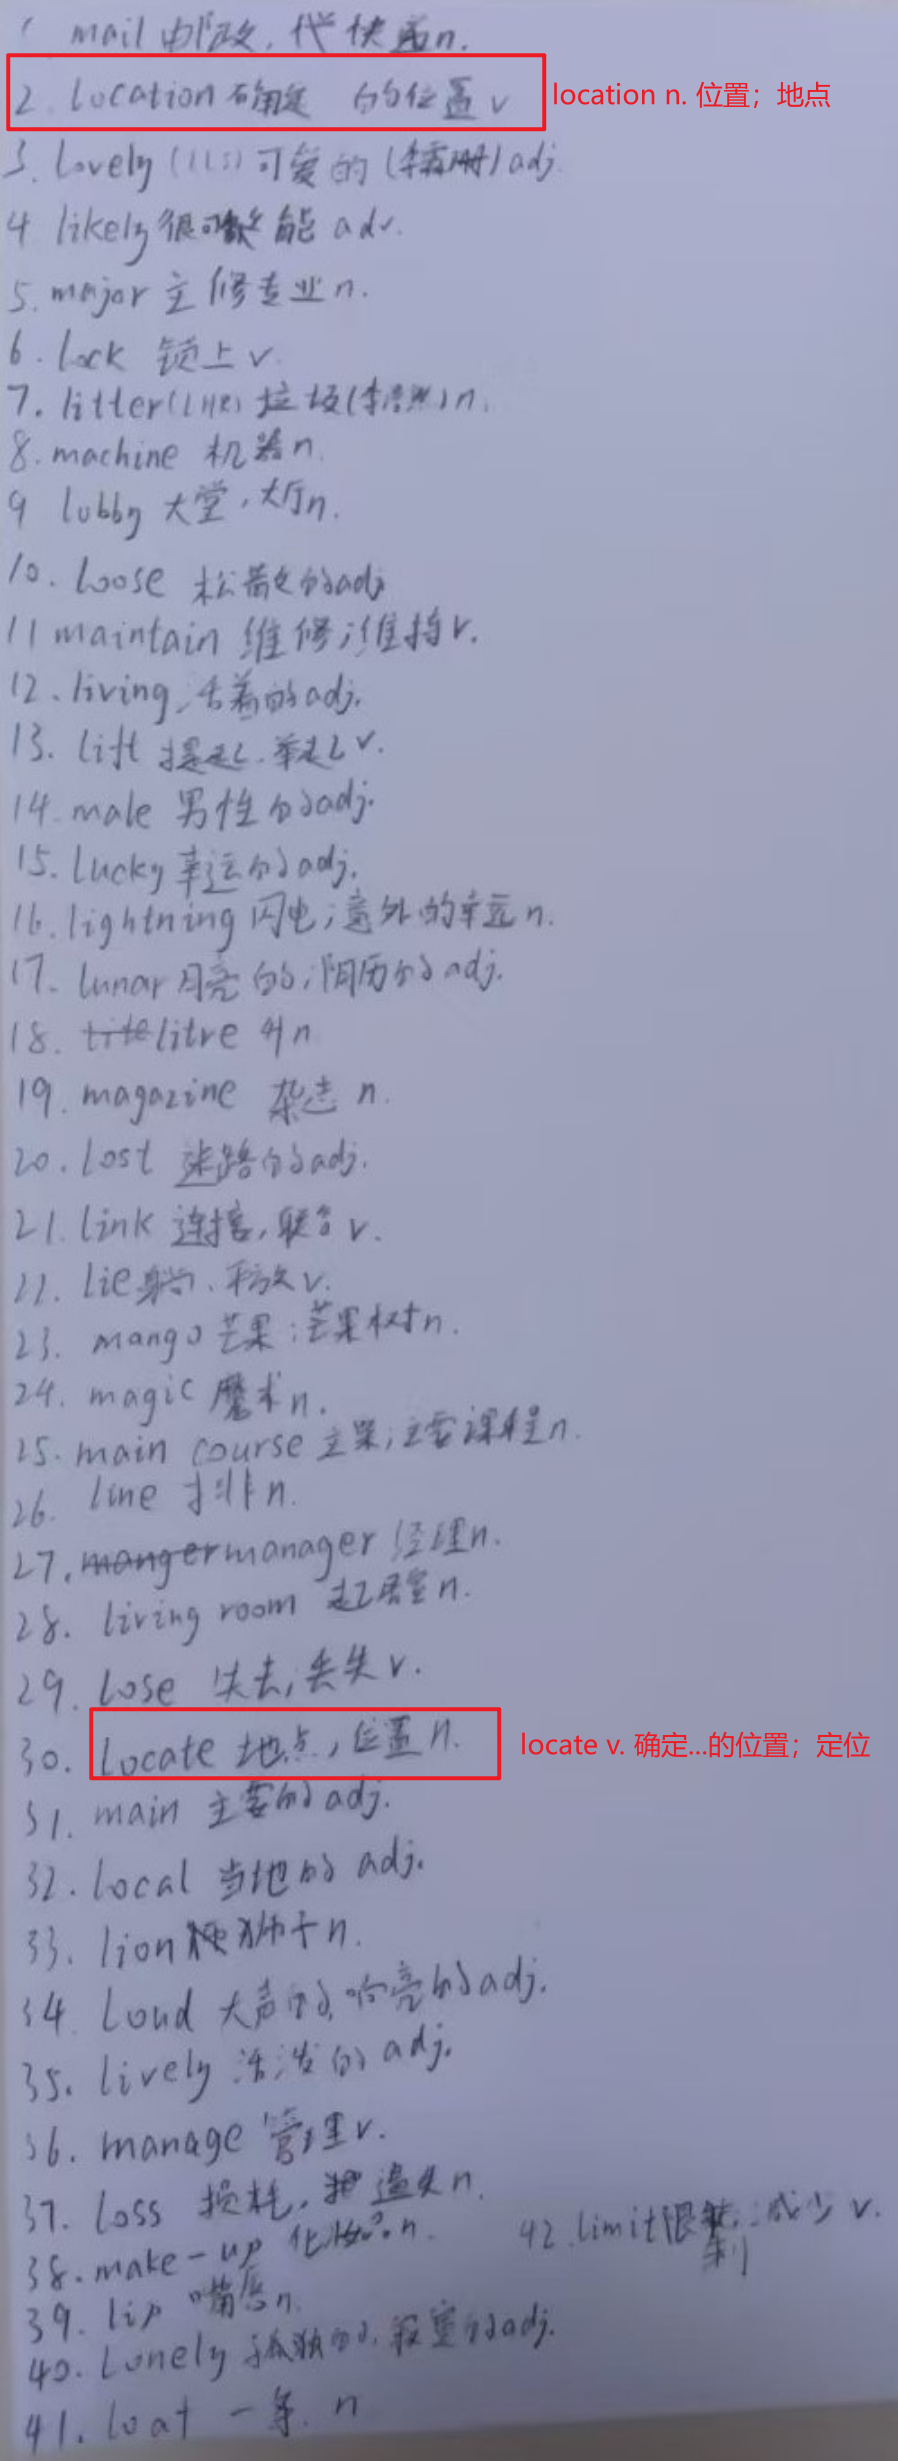 1. mail 邮政,代快递n.
2. location 确定 的位置 v
location n. 位置；地点
3. lovely (LLS) 可爱的 (李露珊) adj.
4 likely 很可能 adv.
5. major 主修专业 n.
6. lock 锁上 v.
7. litter(LHR) 垃圾(李浩然) n.
8. machine 机器n.
9 lobby 大堂,大厅n.
10. loose 松散的adj
11 maintain 维修;维持v.
12. living 活着的adj.
13. lift 提起.举起 v.
14. male 男性的adj.
15. lucky 幸运的adj.
16. lightning 闪电;意外的幸运 n.
17. lunar 月亮的;阴历的adj.
18. litre 升n
19. magazine 杂志 n.
20. lost 迷路的adj.
21. link 连接,联合 v.
22. lie 躺、平放 v.
23. mango 芒果;芒果树n.
24. magic 魔术n.
25. main course 主菜;主要课程n.
26. line 排n.
27. manger manager 经理n.
28. living room 起居室n.
29. lose 失去,丢失v.
30. locate 地点,位置n.
locate v. 确定...的位置；定位
31. main 主要的adj.
32. local 当地的 adj.
33. lion 狮子n.
34. loud 大声的,响亮的adj.
35. lively 活泼的adj.
36. manage 管理v.
37. loss 损耗, 遗失n.
38. make-up 化妆品n.
42. limit限制;减少 v.
39. lip 嘴唇n.
40. lonely 孤独的,寂寞的adj.
41. loat 一条. n